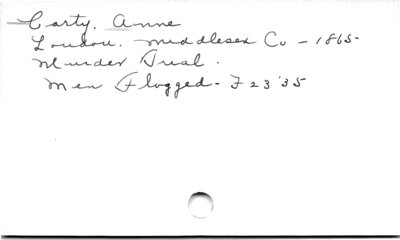 Carty. Anne
London. Middlesex Co - 1865-
Murder Trial.
Men Flogged - F 23 '35